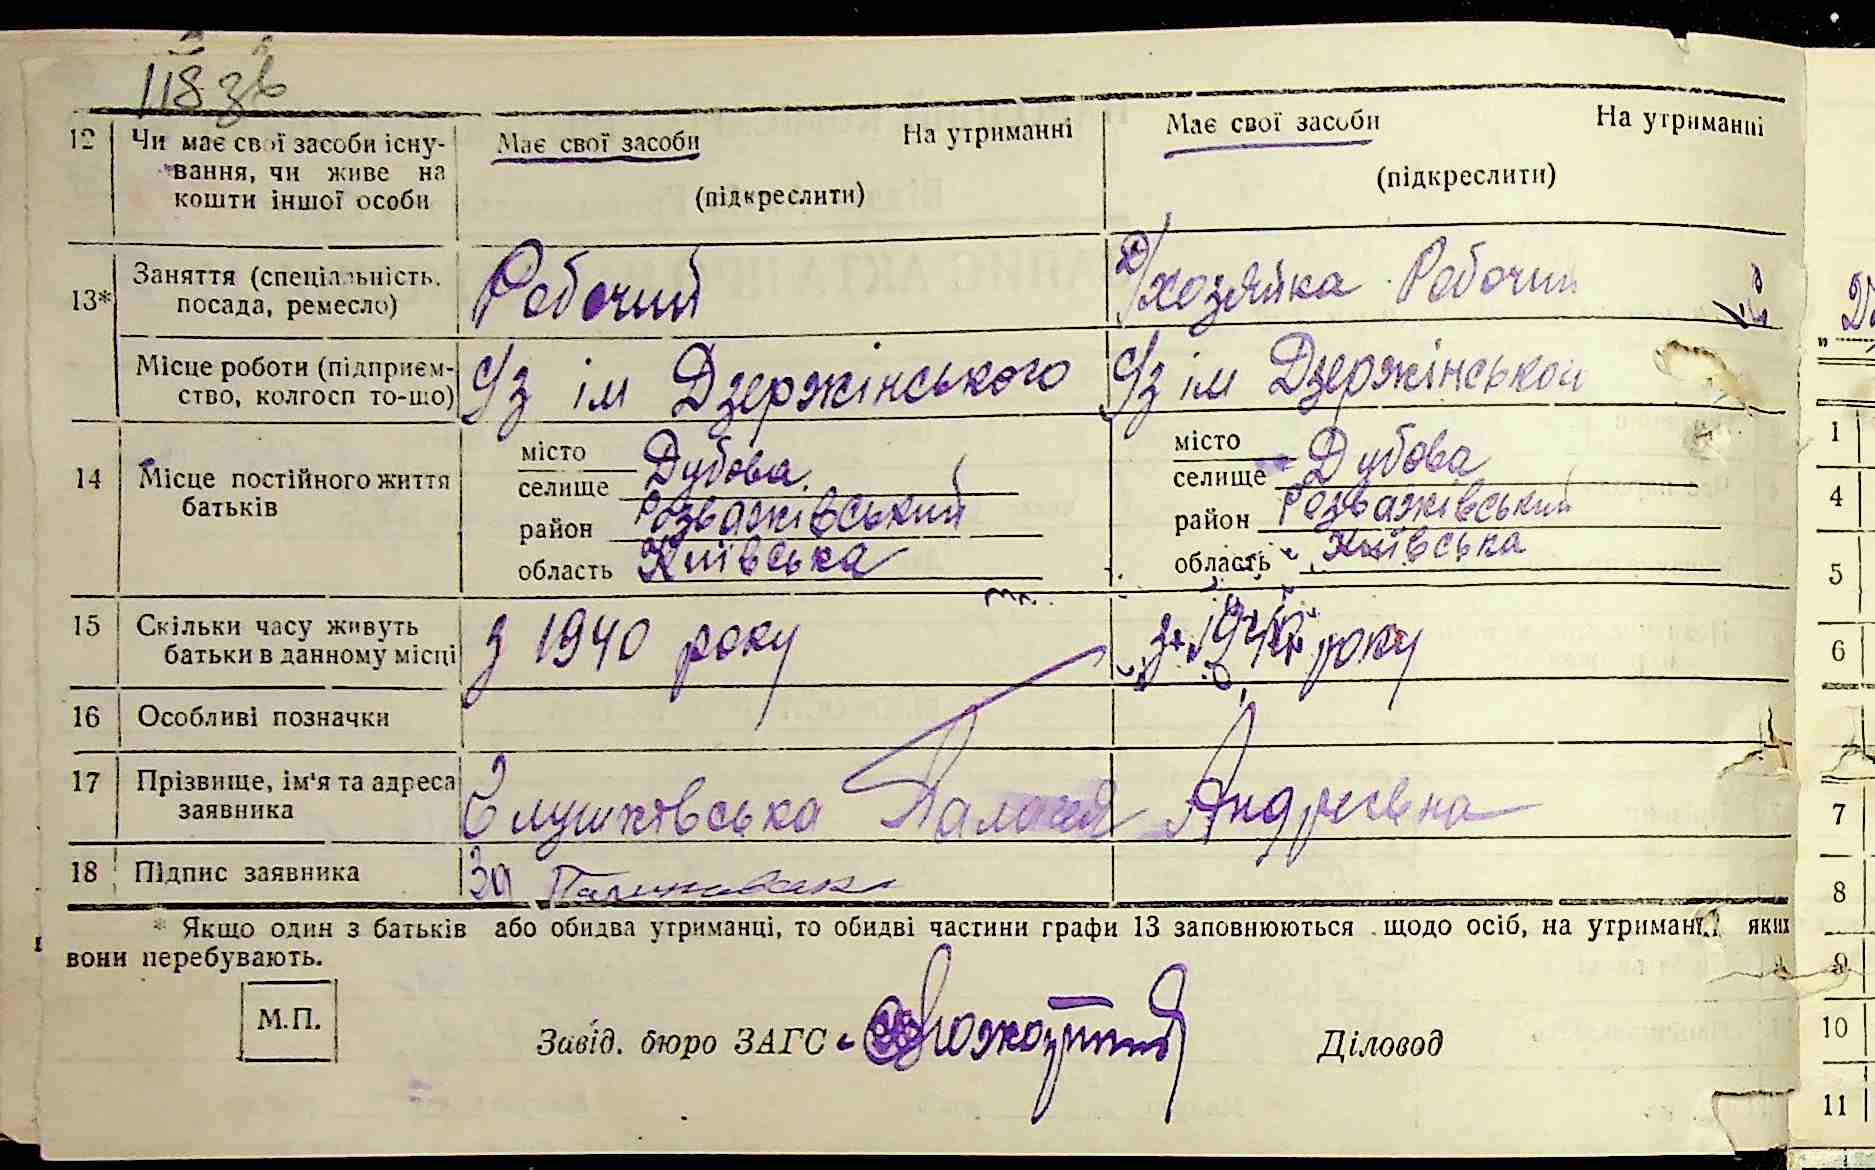 118 зв
12 Чи має свої засоби існу- Має свої засоби На утриманні Має свої засоби На утриманні
вання, чи живе на
кошти іншої особи (підкреслити) (підкреслити)
13* Заняття (спеціальність, Робочий Д/хозяйка Робочий
посада, ремесло)
Місце роботи (підприєм- С/г ім Дзержінського С/г ім Дзержінського
ство, колгосп то-що)
14 Місце постійного життя місто Дубова місто Дубова
батьків селище селище
район Розважівський район Розважівський
область Київська область Київська
15 Скільки часу живуть З 1940 року З 1940 року
батьки в данному місці
16 Особливі позначки
17 Прізвище, ім'я та адреса Палажея Андреєвна
заявника
18 Підпис заявника За
* Якщо один з батьків або обидва утриманці, то обидві частини графи 13 заповнюються щодо осіб, на утриманні яких
вони перебувають.
М.П.
Завід. бюро ЗАГС Діловод
1
4
5
6
7
8
9
10
11